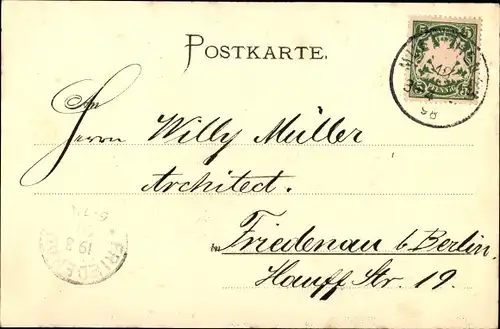 POSTKARTE.
An
Herrn Willy Müller
Architect.
in Friedenau b. Berlin,
Hauff Str. 19.
5 5
PFENNIG
98
19 8
FRIEDE